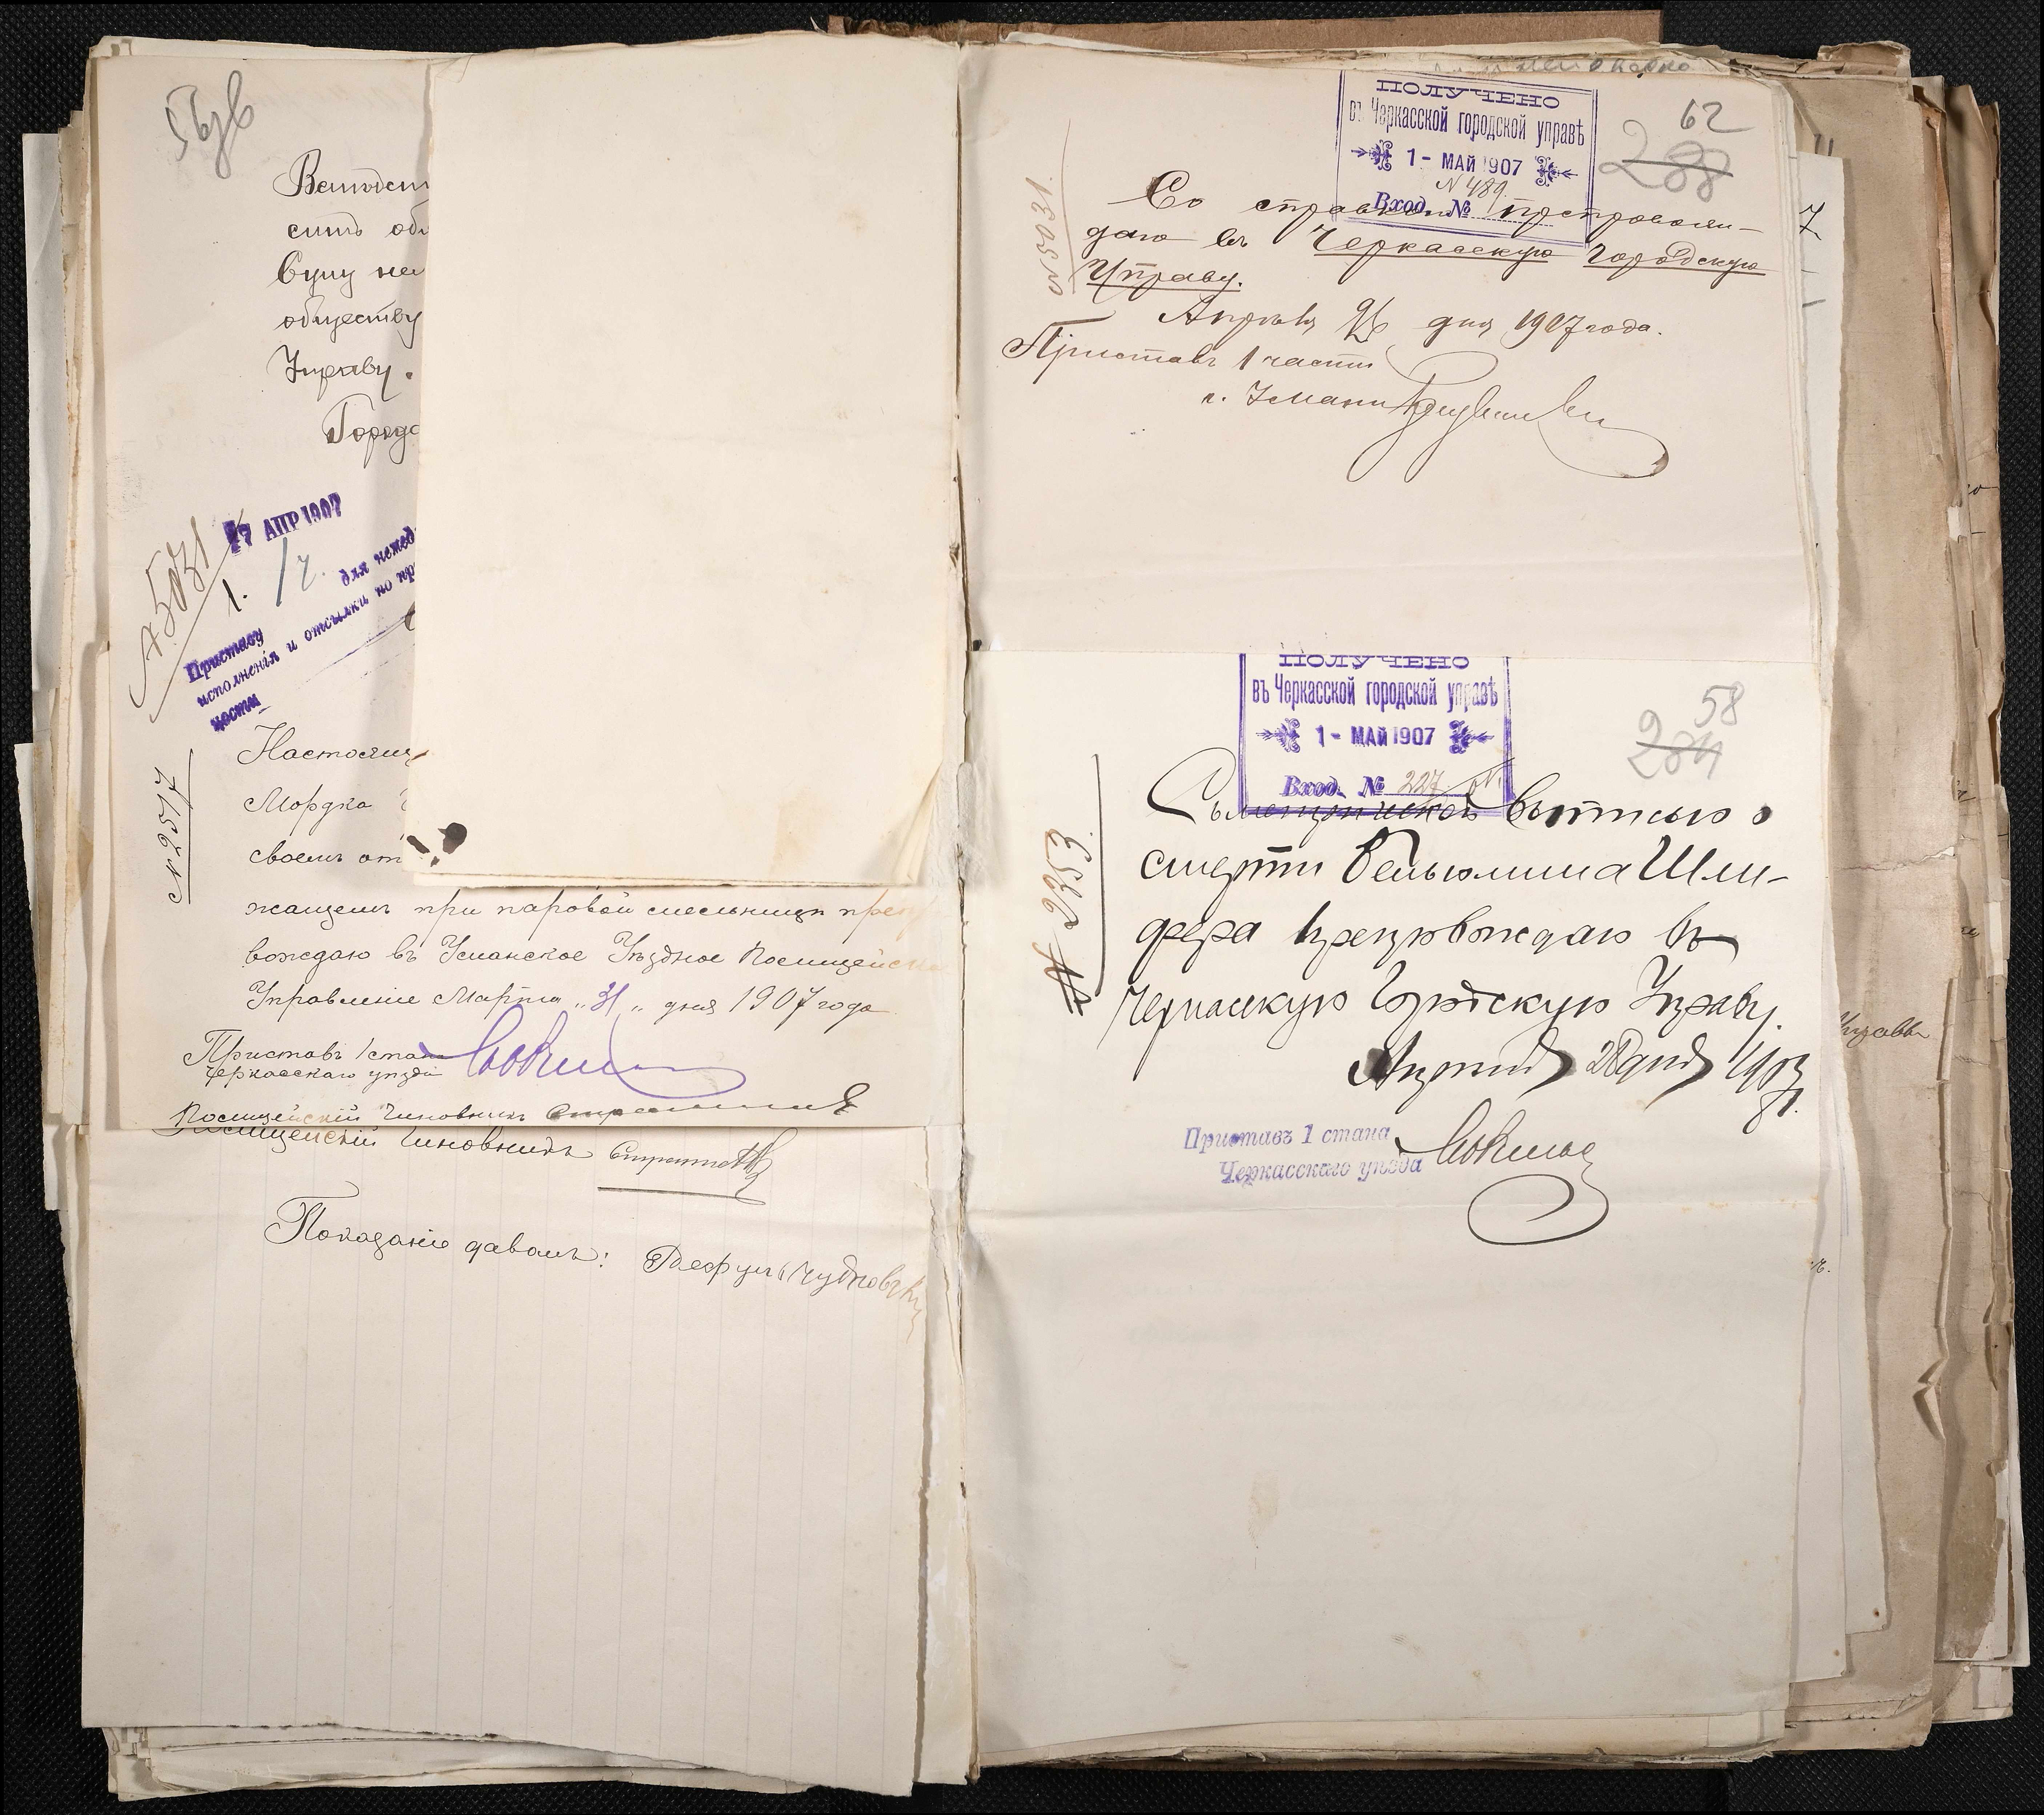 Городс
17 АПР 1907
1.
Приставу
для немед
исполненія и отсылки по пр
ности
№ 5031
№ 2517
Настоящ
Мордка
своемъ от
жащемъ при паровой мельницѣ препро
вождаю въ Уманское Уѣздное Полицейск
Управленіе Марта „31„ дня 1907 года
Приставъ 1 стана
Черкасскаго уѣзда
Полицейскій Чиновникъ
Полицейскій Чиновникъ
Показаніе давалъ:
ПОЛУЧЕНО
въ Черкасской городской управѣ
1 - МАЙ 1907
Вход. № 489
62
288
№ 5031.
Со справкой препровож-
даю въ Черкасскую Городскую
Управу.
Апрѣля 26 дня 1907 года.
Приставъ 1 части
г. Умани
ПОЛУЧЕНО
въ Черкасской городской управѣ
1 - МАЙ 1907
Вход. № 227
58
284
№ 2353.
Съ метрической выписью о
смерти Веньюмина Шли-
фера препровождаю въ
Черкасскую Городскую Управу.
Апрѣля 28 дня 1907
г.
Приставъ 1 стана
Черкасскаго уѣзда